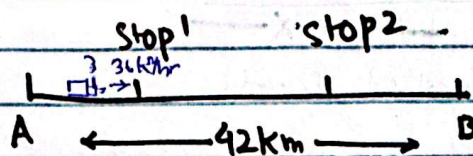 Stop1 Stop2
36km/hr
A 42km B